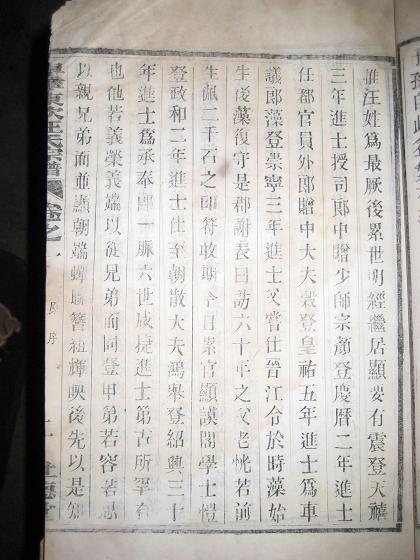 惟汪姓為最厥後累世明經繼居顯要有震登天禧
三年進士授司郎中贈少師宗顏登慶曆二年進士
任都官員外郎贈中大夫穀登皇祐五年進士為車
議郎藻登崇寧三年進士父嘗仕晉江令於時藻始
生後藻復守是郡謝表曰訪六十年之父老恍若前
生佩二千石之印符敢期今日累官顯謨閣學士愷
登政和二年進士仕至朝散大夫鴻舉登紹興三十
年進士為承奉郎一脈六世咸捷進士第古所罕有
也他若義榮義端以從兄弟而同登甲第若容若思
以親兄弟而並顯朝端蟬聯簪組輝映後先以是知
汪氏宗譜 卷之一
原序